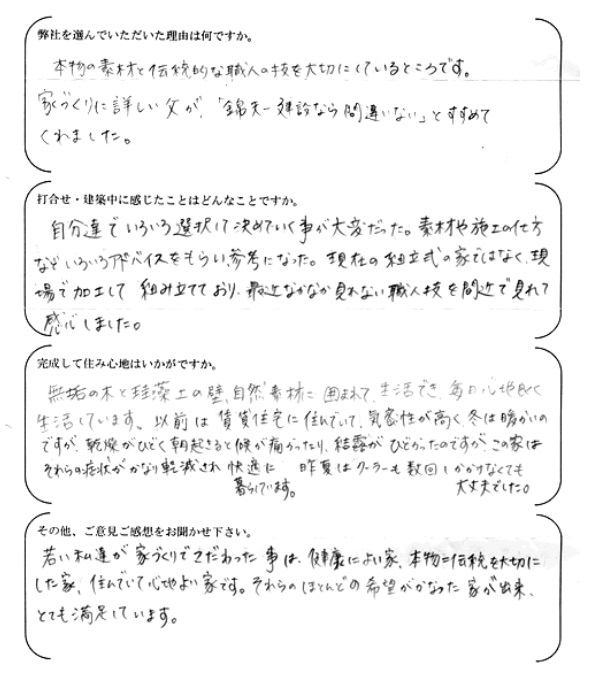 弊社を選んでいただいた理由は何ですか。
本物の素材と伝統的な職人の技を大切にしているところです。
家づくりに詳しい父が、「錦夫一建設なら間違いない」とすすめて
くれました。
打合せ・建築中に感じたことはどんなことですか。
自分達でいろいろ選択して決めていく事が大変だった。素材や施工の仕方
などいろいろアドバイスをもらい、参考になった。現在の組立式の家ではなく、現
場で加工して 組み立てており、最近なかなか見れない職人技を間近で見れて
感心しました。
完成して住み心地はいかがですか。
無垢の木と珪藻土の壁、自然素材に囲まれて、生活でき、毎日心地良く
生活しています。以前は賃貸住宅に住んでいて、気密性が高く、冬は暖かいの
ですが、乾燥がひどく朝起きると喉が痛かったり、結露がひどかったのですが、この家は
それらの症状がかなり軽減され 快適に 昨夏はクーラーも数回しかかけなくても
暮らしています。 大丈夫でした。
その他、ご意見ご感想をお聞かせ下さい。
若い私達が家づくりでこだわった事は、健康によい家、本物=伝統を大切に
した家、住んでいて心地よい家です。それらのほとんどの希望がかなった家が出来、
とても満足しています。